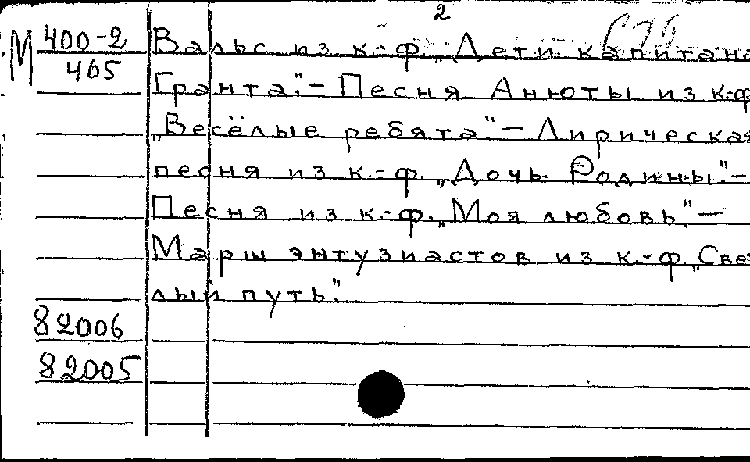 2
М 400-2
465
Вальс из к-ф. „Дети капитана
Гранта".– Песня Анюты из к-ф
„Весёлые ребята" – Лирическая
песня из к.-ф. „Дочь Родины".–
Песня из к.-ф. „Моя любовь" –
Марш энтузиастов из к.-ф „Свет
лый путь".
82006
82005